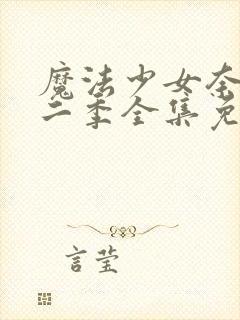 魔法少女奈
二季全集免
言莹